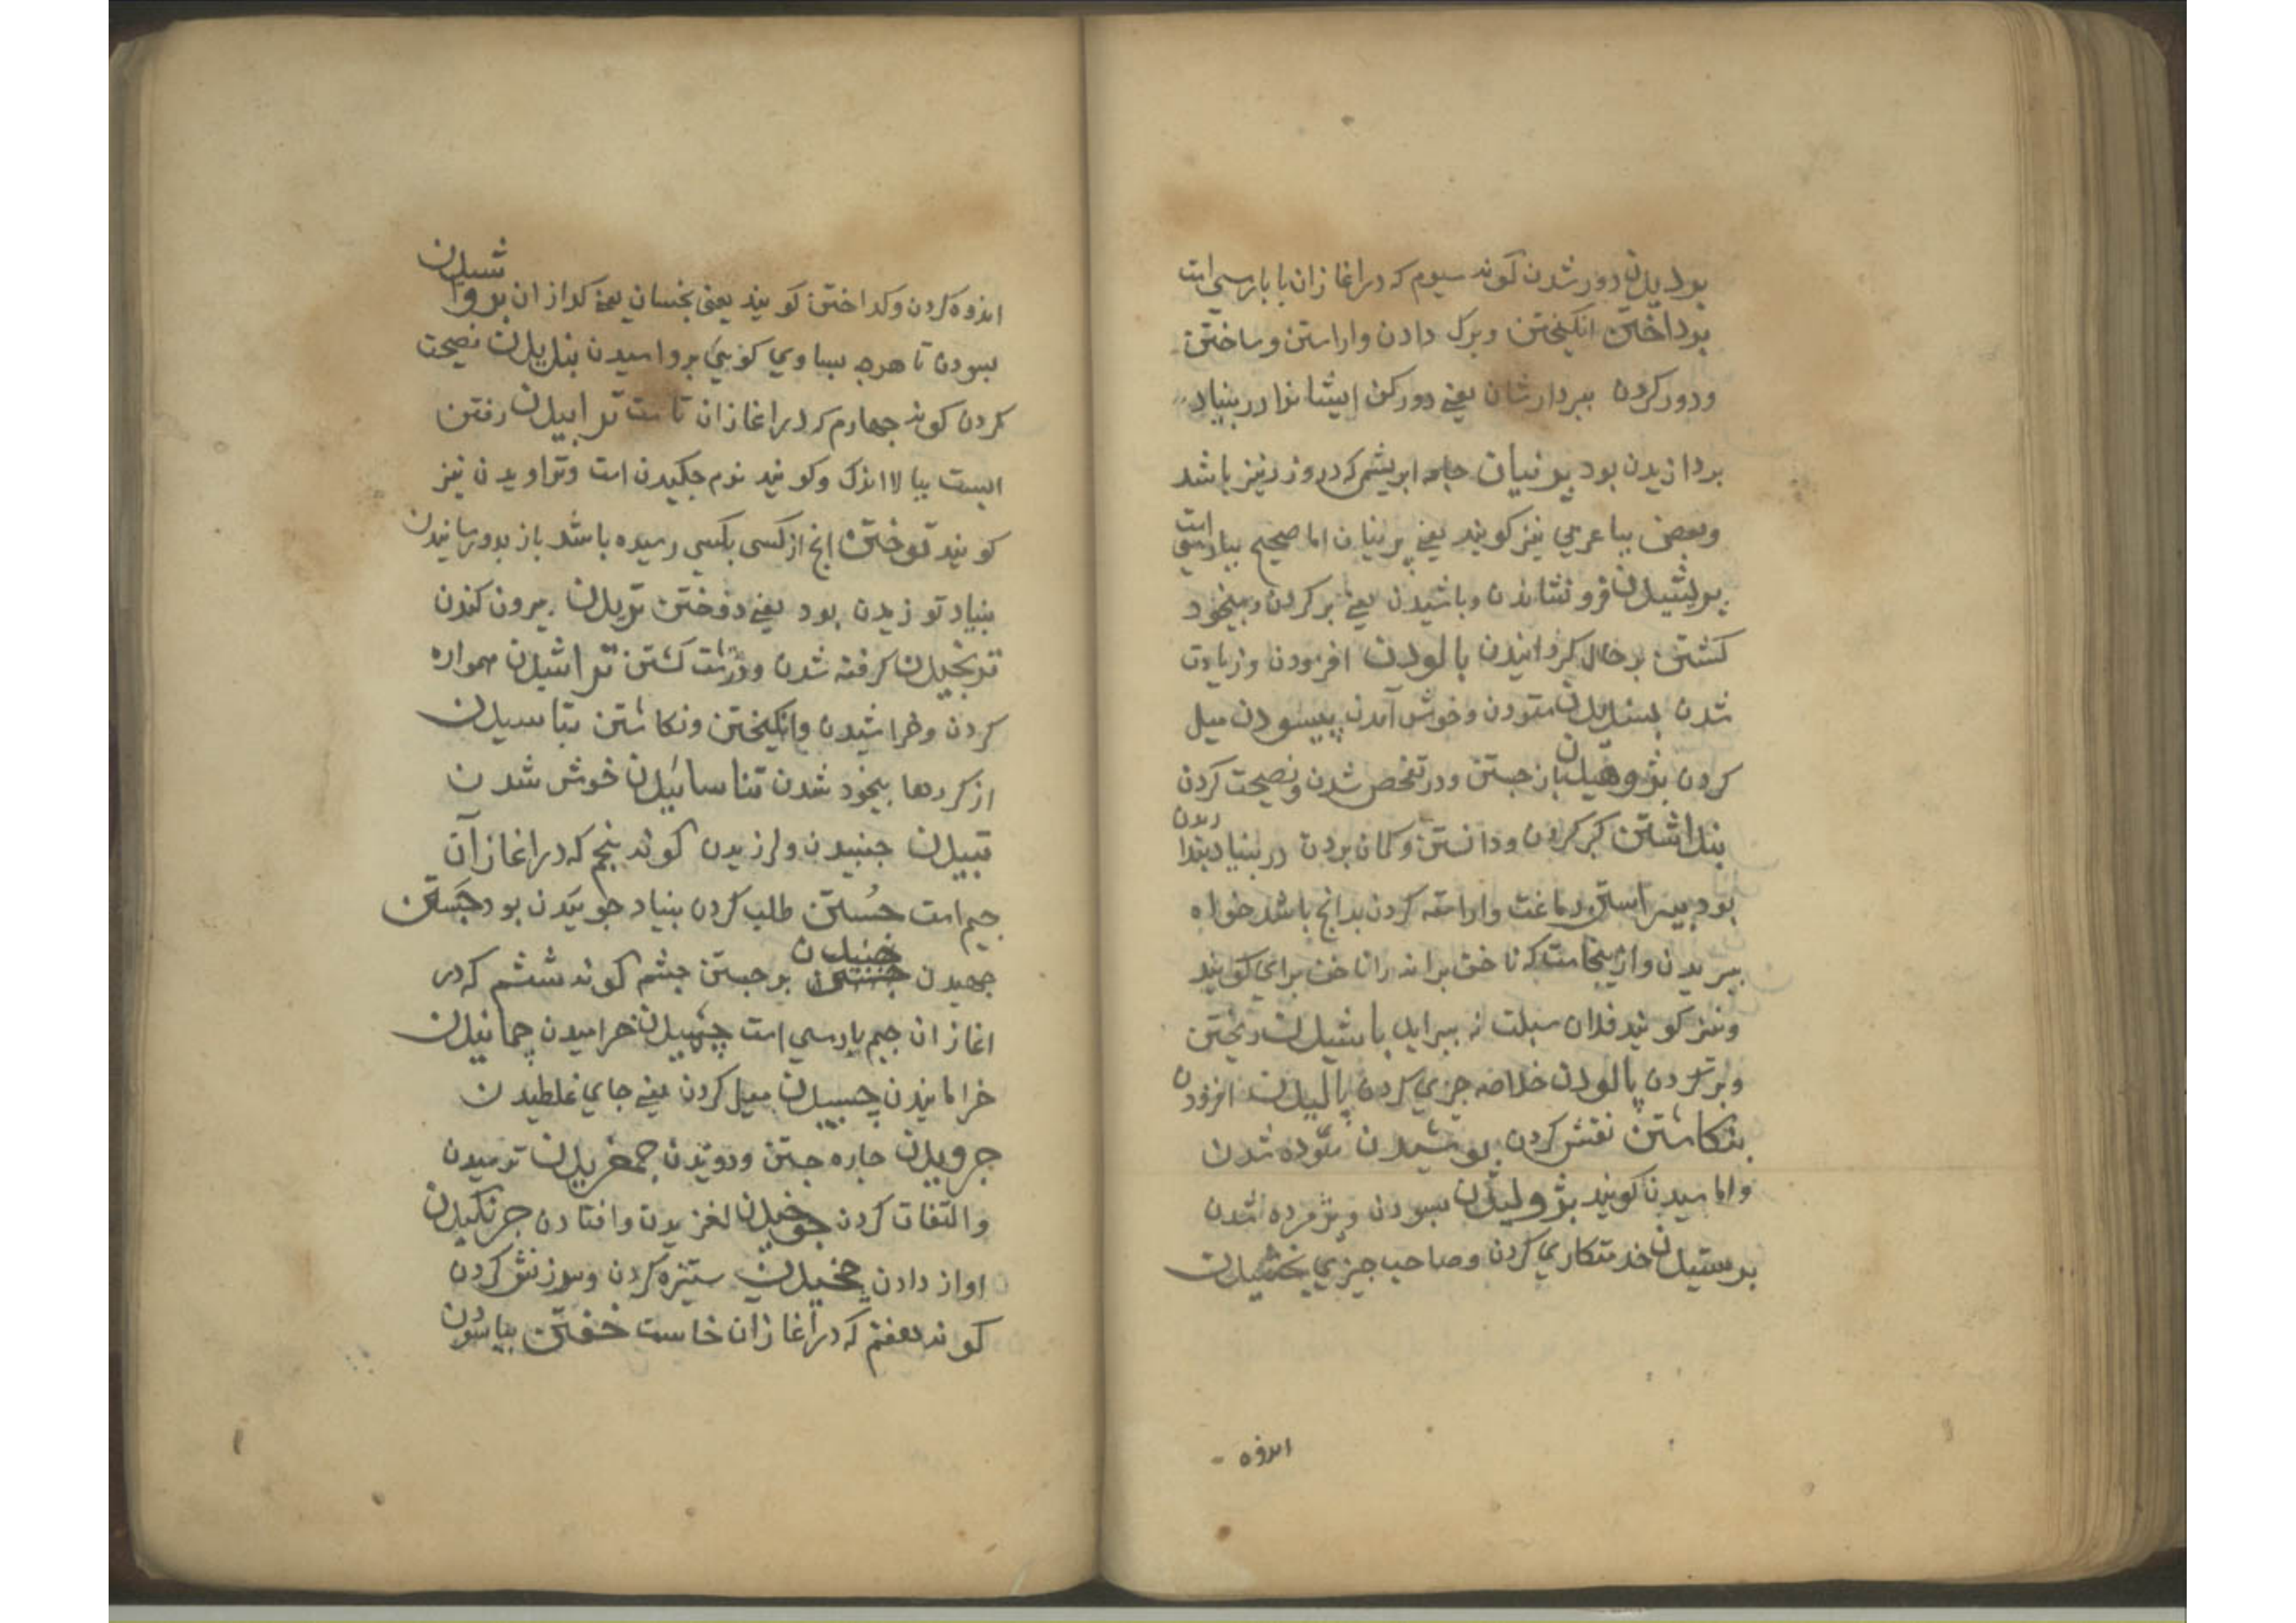 بردیدن دور شدن کویند سیوم که در اغاز ان با پارسی است
برداختن انکیختن و برک دادن و اراستن و ساختن
و دور کردن ببردارشان یعنی دور کن ایشانرا در بنیاد
بردازیدن بود پرنیان جامه ابریشمی که در روز نیز باشد
و بعضی بیا عربی نیز کویند یعنی برنیان اما صحیح بیا پارسی است
برنشیدن فرو نشاندن و باشیدن یعنی بر کردن و بیخود
کشتن بر حال کردانیدن بالودن افزودن و زیادت
شدن بسندیدن ستودن و خوش آمدن پیسودن میل
کردن پژوهیدن باز جستن و در تفحص شدن و نصیحت کردن
بنداشتن کبر کردن و دانستن و کمان بردن در بنیاد بندا ریدن
بود پیراستن دباغت و اراسته کردن بدانج باشد خواه
ببریدن و ازینجاست که ناخن برانه را ناخن برای کویند
و نیز کویند فلان سبلت نه بیراید باشیدن ریختن
و بر تر کردن پالودن خلاصه چیزی کردن پالیدن افزودن
بنکاشتن نقش کردن پوشیدن ستوده شدن
و اماسیدن کویند پژولیدن بسودن و پژمرده شدن
برستیدن خدمتکاری کردن و صاحب چیزی بخشیدن
اندوه
اندوه کردن و کداختن کویند یعنی بخسان یعنی کدازان برواشیدن
بسودن تا هرچه ببساوی کویی برواسیدن بندیدن نصیحت
کردن کویند چهارم که در اغاز ان تا ست ترابیدن رفتن
ابست ببالا اندک و کویند نرم چکیدن است و تراویدن نیز
کویند توختن انج از کسی بکسی رسیده باشد باز بدو رسانیدن
بنیاد توزیدن بود یعنی دوختن تریدن بیرون کندن
ترنجیدن کرفته شدن و درشت کشتن تراشیدن همواره
کردن و خراشیدن و انکیختن و نکاشتن بتاسیدن
از کردها بیخود شدن تناسائیدن خوش شدن
تبیدن جنبیدن و لرزیدن کویند پنجم که در اغاز آن
جیم است جُستن طلب کردن بنیاد جوئیدن بود جَستن
جهیدن جنبیدن برجستن چشم کویند ششم که در
اغاز ان جیم پارسی است چمیدن خرامیدن چمانیدن
خرامانیدن چسبیدن میل کردن یعنی جای غلطیدن
جرویدن چاره جستن و دویدن چمغزیدن ترسیدن
و التفات کردن چوخیدن لغزیدن و افتادن جرنکیدن
اواز دادن چخیدن ستیزه کردن و سرزنش کردن
کویند هفتم که در اغاز آن خاست خفتن بیاسودن